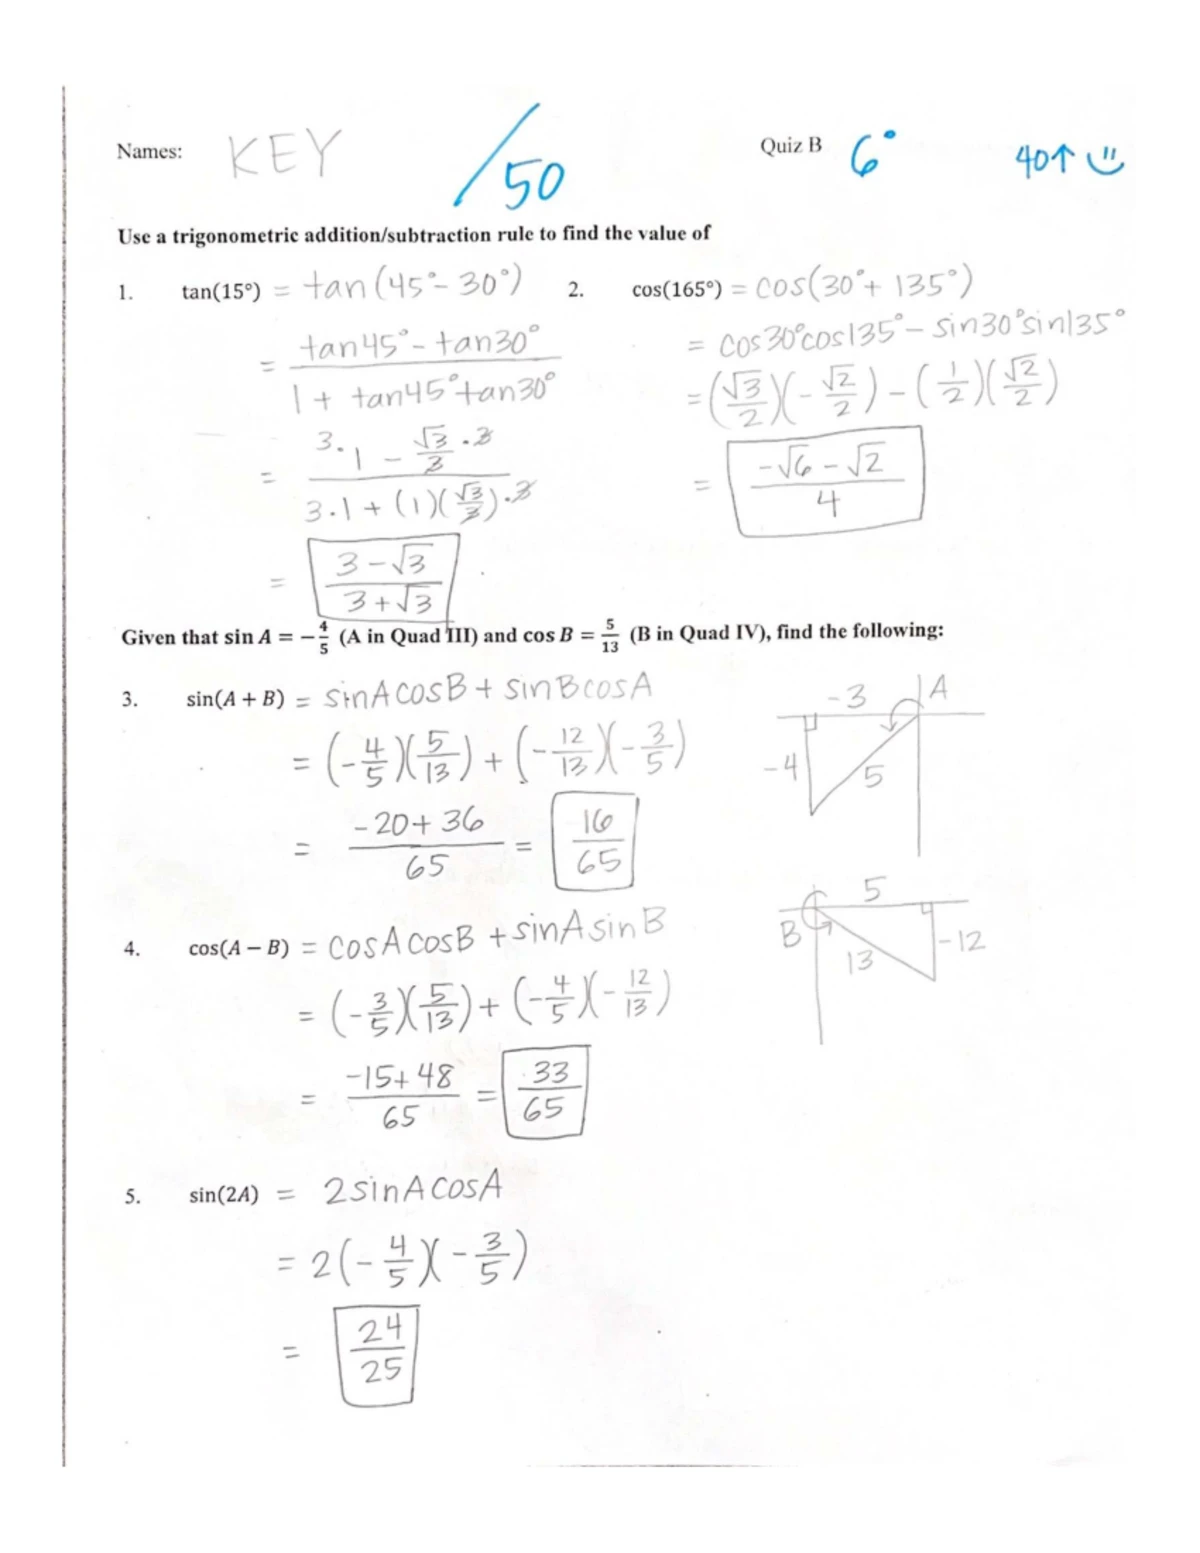 Names: KEY /50 Quiz B 6° 40↑ Ü
Use a trigonometric addition/subtraction rule to find the value of
1. tan(15°) = tan(45° - 30°)
= (tan45° - tan30°) / (1 + tan45°tan30°)
= (3·1 - √3/3 ·3) / (3·1 + (1)(√3/3)·3)
= (3 - √3) / (3 + √3)
2. cos(165°) = cos(30° + 135°)
= cos30°cos135° - sin30°sin135°
= (√3/2)(-√2/2) - (1/2)(√2/2)
= (-√6 - √2) / 4
Given that sin A = -4/5 (A in Quad III) and cos B = 5/13 (B in Quad IV), find the following:
3. sin(A + B) = sinAcosB + sinBcosA
= (-4/5)(5/13) + (-12/13)(-3/5)
= (-20 + 36) / 65 = 16/65
-3 A
-4 5
4. cos(A − B) = cosAcosB + sinAsinB
= (-3/5)(5/13) + (-4/5)(-12/13)
= (-15 + 48) / 65 = 33/65
5
B -12
13
5. sin(2A) = 2sinAcosA
= 2(-4/5)(-3/5)
= 24/25